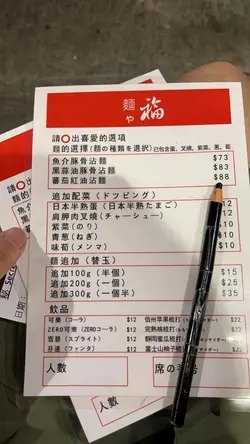 麵や福
請○出喜愛的選項
麵的選擇(麵の種類を選択)已包含蛋, 叉燒, 紫菜, 蔥, 筍
魚介豚骨沾麵 $73
黑蒜油豚骨沾麵 $83
蕃茄紅油沾麵 $88
追加配菜(ドッピング)
日本半熟蛋(日本半熟たまご) $12
肩胛肉叉燒(チャーシュー)
紫菜(のり)
青蔥(ねぎ)
味筍(メンマ)
麵追加(替玉)
追加100g(半個) $15
追加200g(一個) $25
追加300g(一個半) $35
飲品
可樂(コーラ) $12
ZERO可樂(ZEROコーラ) $12
雪碧(スプライト) $12
芬達(ファンタ) $12
信州苹果梳打 $22
完熟桃梳打
靜岡蜜瓜梳打
富士山柚子梳打
人數
席の
人數